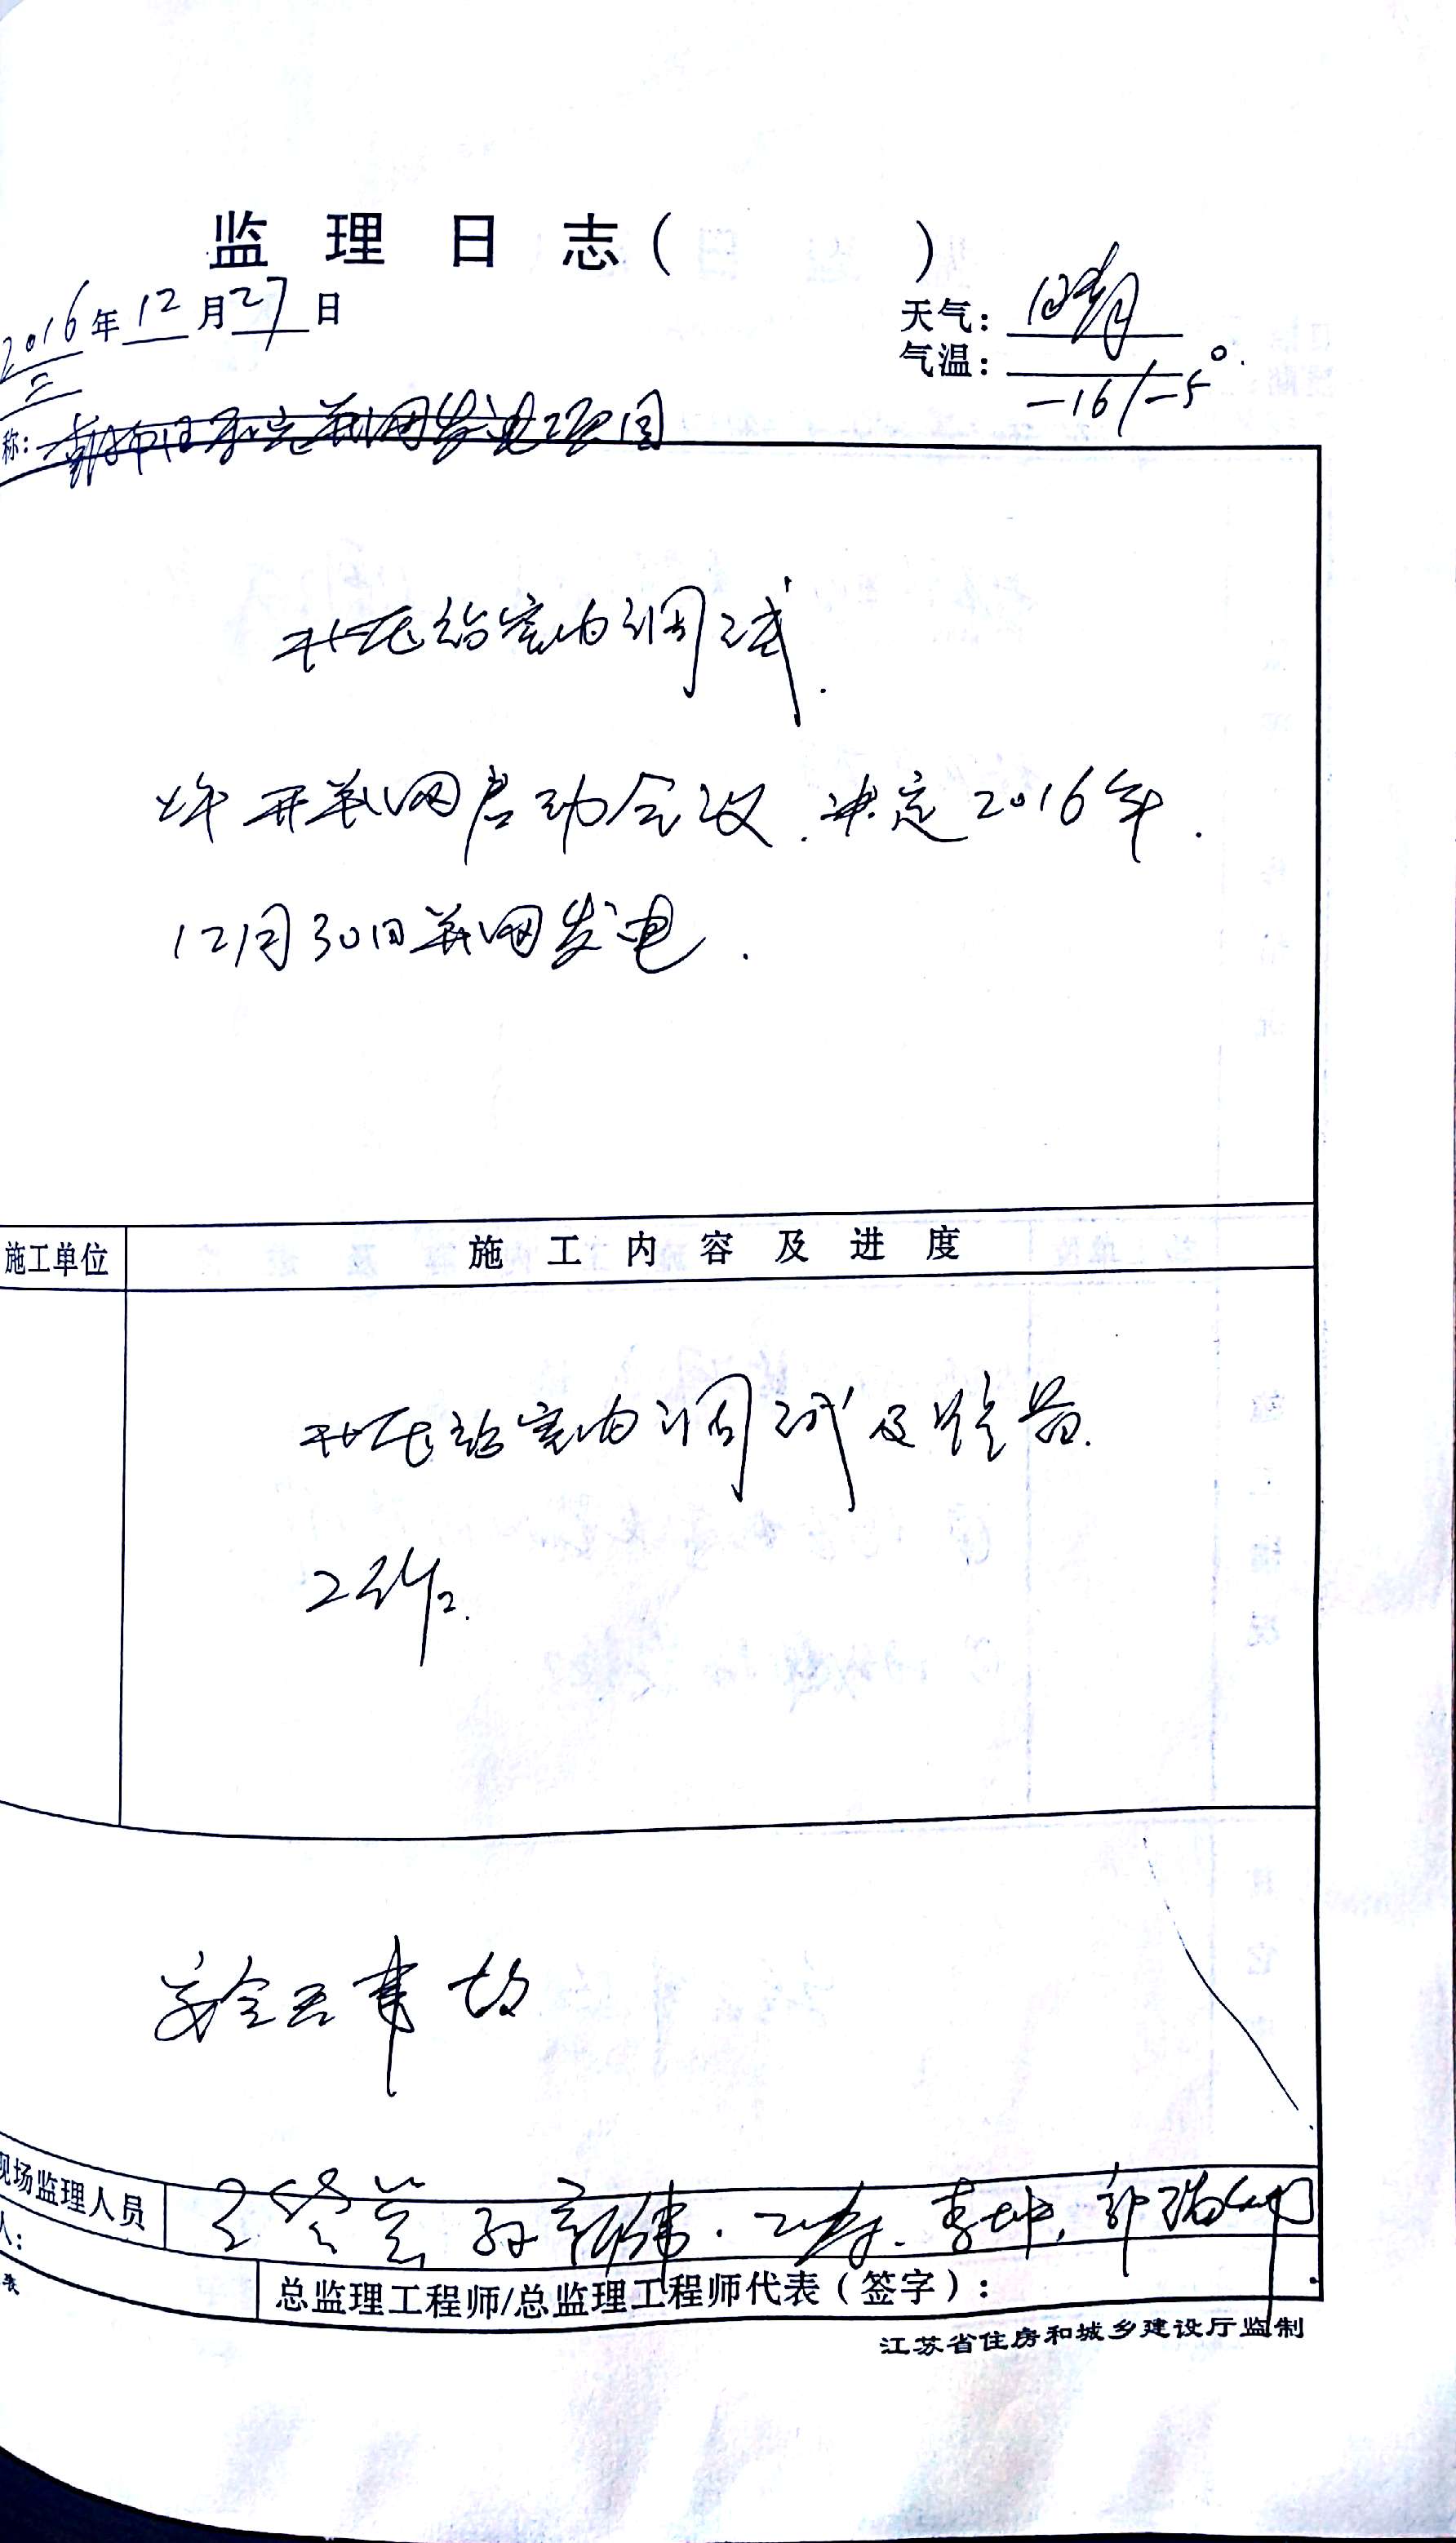 监理日志( )
2016年12月27日
天气: 晴
气温: -16/-5°
二
称: 并网发电项目
升压站室内调试.
上午开并网启动会议.决定2016年.
12月30日并网发电.
施工单位 施工内容及进度
升压站室内调试及
工作.
安全无事故
现场监理人员 孙 李坤, 郭
人:
总监理工程师/总监理工程师代表(签字):
江苏省住房和城乡建设厅监制